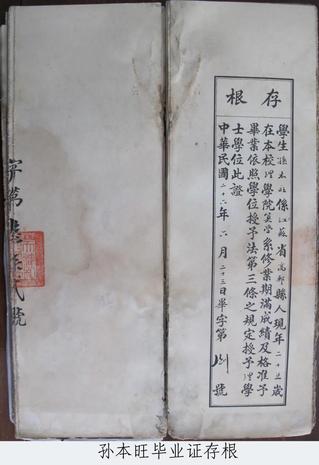 存根
學生孫本旺係江蘇省高郵縣人現年二十三歲
在本校理學院算學系修業期滿成績及格准予
畢業依照學位授予法第三條之規定授予理學
士學位此證
中華民國二十六年六月二十三日畢字第
號
字第
號
孙本旺毕业证存根